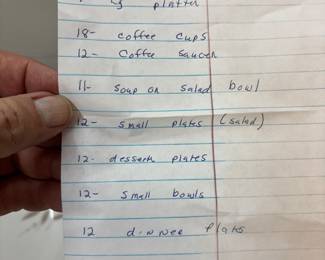 platter
18- coffee cups
12- Coffee saucer
11- Soup or salad bowl
12- small plates (salad)
12- dessert plates
12- small bowls
12 dinner plates